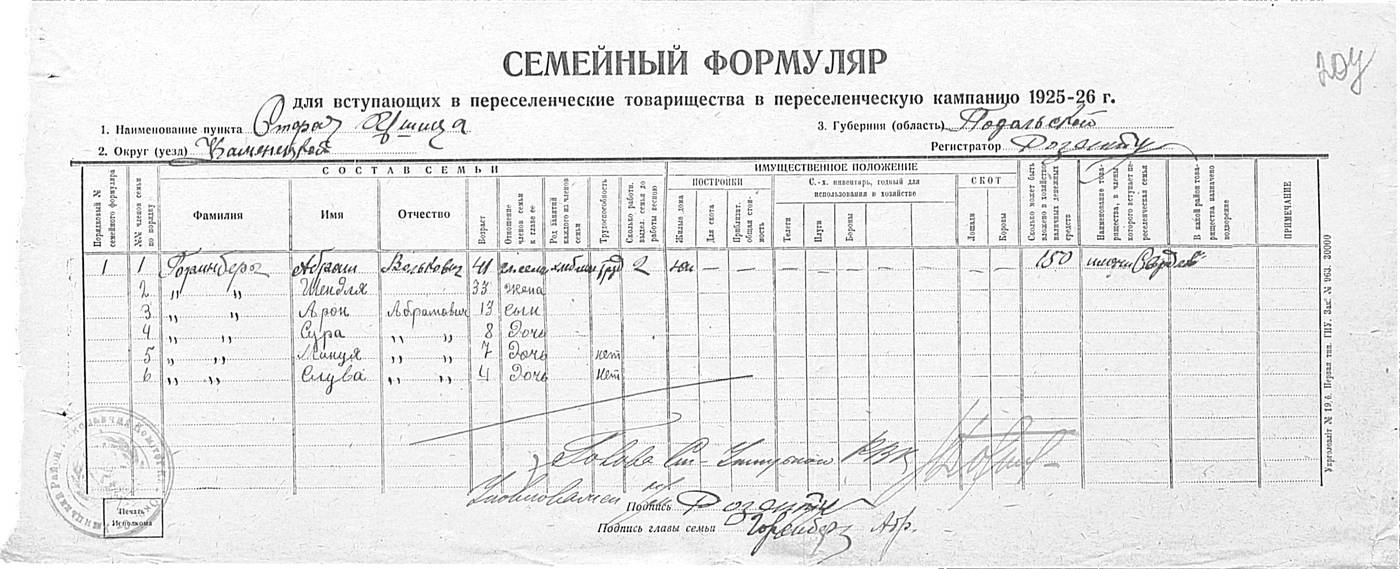 204
СЕМЕЙНЫЙ ФОРМУЛЯР
для вступающих в переселенческие товарищества в переселенческую кампанию 1925-26 г.
1. Наименование пункта Старая Ушица 3. Губерния (область) Подольской
2. Округ (уезд) Каменецкой Регистратор Розенблит
Порядковый № семейного формуляра
№№ членов семьи по порядку
СОСТАВ СЕМЬИ
Фамилия Имя Отчество Возраст
Отношение членов семьи к главе ее
Род занятий каждого из членов семьи
Трудоспособность
Сколько работн. выдел. семья до работы весною
ИМУЩЕСТВЕННОЕ ПОЛОЖЕНИЕ
ПОСТРОЙКИ
Жилые дома
Для скота
Приблизит. общая стоимость
С.-х. инвентарь, годный для использования в хозяйстве
Телеги
Плуги
Бороны
СКОТ
Лошади
Коровы
Сколько может быть вложено в хозяйство наличных денежных средств
Наименование товарищества, в члены которого вступает переселенческая семья
В какой район товарищества назначено водворение
ПРИМЕЧАНИЕ
1 1 Абрам Волькович 41 труд 2 — — — — — — — 150 имени
2 „ „ Шендля 33 жена
3 „ „ Арон Абрамович 13 сын
4 „ „ Сура „ „ 8 Дочь
5 „ „ „ „ 7 Дочь нет
6 „ „ Слува „ „ 4 Дочь нет
Голова Ст-Ушицького РВК
Уполномочен
Подпись
Подпись главы семьи Абр.
Печать Исполкома
Укрголовліт № 19.6. Первая тип. ГИУ. Зак. № 963. 30000